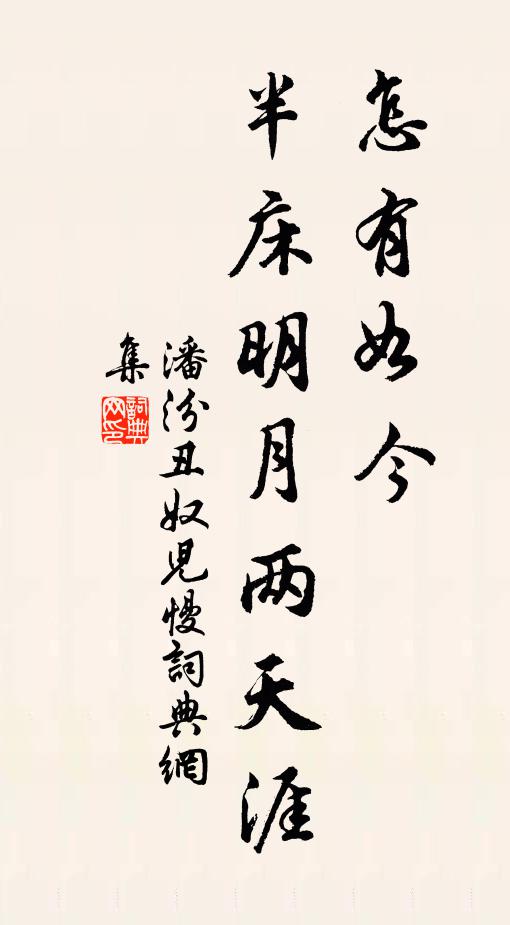 怎有如今
半床明月两天涯
潘汾丑奴児慢詞典網
集
詞典網印